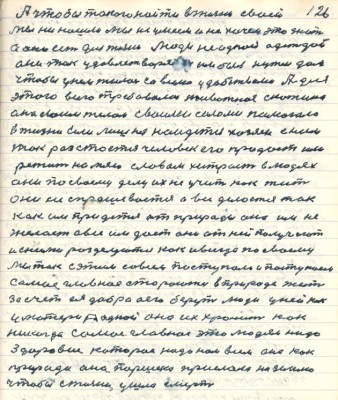 А чтобы такого найти в жизни своей 126
мы ни нашли мы ни умеем и не хочем это знать
а они есть для таких людей не одной одеждой
они так удовлетворяются им был нужен дом
чтобы в нем жилось со всеми удобствами А для
этого всего требовалось животное скотина
она своим телом своими силами помогала
в жизни Если лиш не найдется хозяин с ним
так расстается человек его продает или
режит на мясо словам хитрость в людях
они по своему делу их не учит как жить
они не спрашивается а все делается так
как им придется от природы оно или не
желает а ей им дает они от ней получают
и с ними разделуются как и всегда по своему
мы так с этим совсем поступали и поступаем
Самое главное старость в природе жить
за счет ея добра а его берут люди у ней как
у матери родной она их хранит как
никогда Самое главное это людям надо
здоровие которое надо нам всем оно как
природа она Паршека прислала на землю
чтобы с жизни ушла смерть